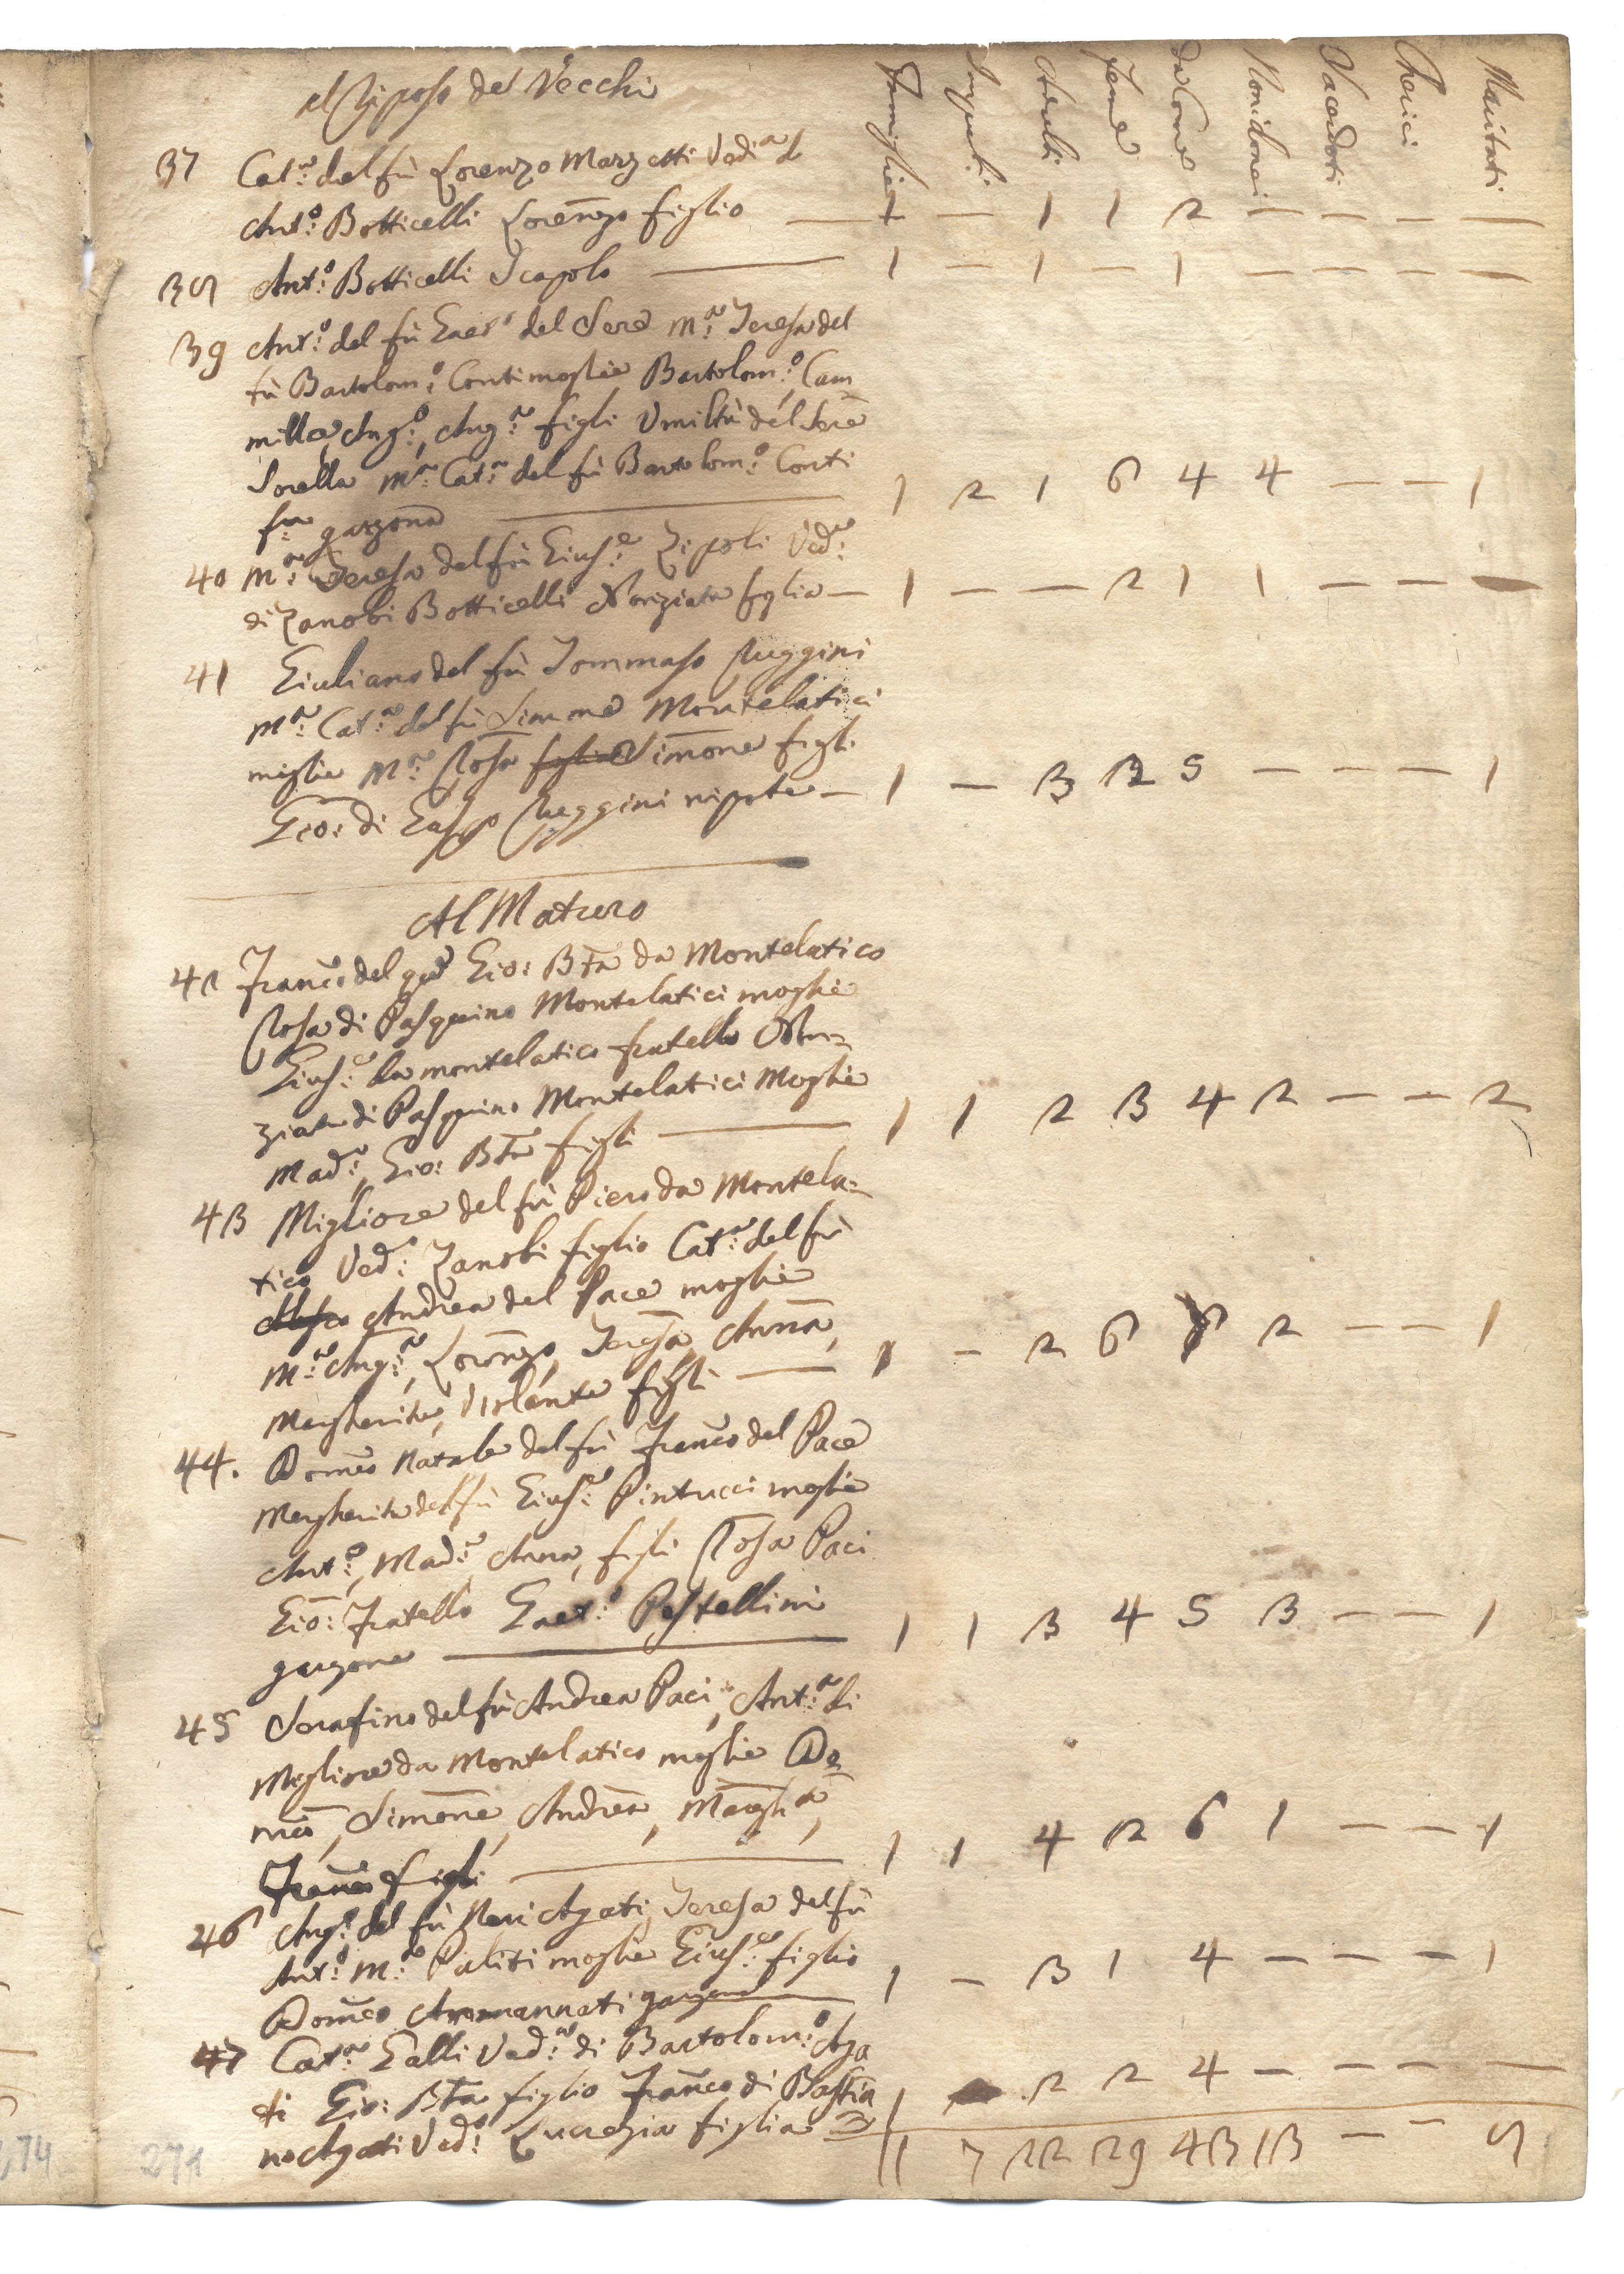 Al Riposo de Vecchi
Famiglie Impuberi Maschi Feme Da Com.e Non idonei Sacerdoti Cherici Maritati
37 Cat.a del fù Lorenzo Marzetti Ved.a di
Ant.o Botticelli Lorenzo figlio — 1 — 1 1 2 — — — —
38 Ant.o Botticelli Scapolo — 1 — 1 — 1 — — — —
39 Ant.o del fù Gaet.o del Sere M.a Teresa del
fù Bartolom.o Conti moglie Bartolom.o, Cam
milla, Ang.o, Ang.a figli Umiltà del Sere
Sorella M.a Cat.a del fù Bartolom.o Conti
garzona — 1 2 1 6 4 4 — — 1
40 M.a Teresa del fù Gius.e Zipoli Ved.a
di Zanobi Botticelli Nunziata figlia — 1 — — 2 1 1 — — —
41 Giuliano del fù Tommaso Ruggini
M.a Cat.a del fù Simone Montelatici
moglie M.a Rosa figlia Simone figli
Gio: di Gasp.o Ruggini nipote — 1 — 3 2 5 — — — 1
Al Matero
42 Franc.o del q.m Gio: Bta da Montelatico
Rosa di Pasquino Montelatici moglie
Gius.e da montelatico fratello Nun=
ziata di Pasquino Montelatici Moglie
Mad.a, Gio: Bta figli — 1 1 2 3 4 2 — — 2
43 Migliore del fù Piero da Montela=
tico Ved.o Zanobi figlio Cat.a del fù
Andrea del Pace moglie
M.a Ang.a, Lorenzo, Teresa, Anna,
Margherita, Violante figli — 1 — 2 6 6 2 — — 1
44. Dom.co Natale del fù Franc.o del Pace
Margherita del fù Gius.e Pintucci moglie
Ant.o, Mad.a, Anna, figli Rosa Paci
Gio: Fratello Gaet.o Pestellini
garzone — 1 1 3 4 5 3 — — 1
45 Serafino del fù Andrea Paci, Ant.a di
Migliore da Montelatico moglie Do
m.co, Simone, Andrea, Margh.a,
Franc.o figli — 1 1 4 2 6 1 — — 1
46 Ang.o del fù Neri Agati, Teresa del fù
Ant.o M.a Puliti moglie Gius.e figlio
Dom.co Ammannati garzone — 1 — 3 1 4 — — — 1
47 Cat.a Galli Ved.a di Bartolom.o Aga
ti Gio: Bta figlio Franc.o di Bastia
no Agati Ved.o Lucrezia figlia — 1 2 2 4 — — — —
11 7 22 29 43 13 — — 8
271